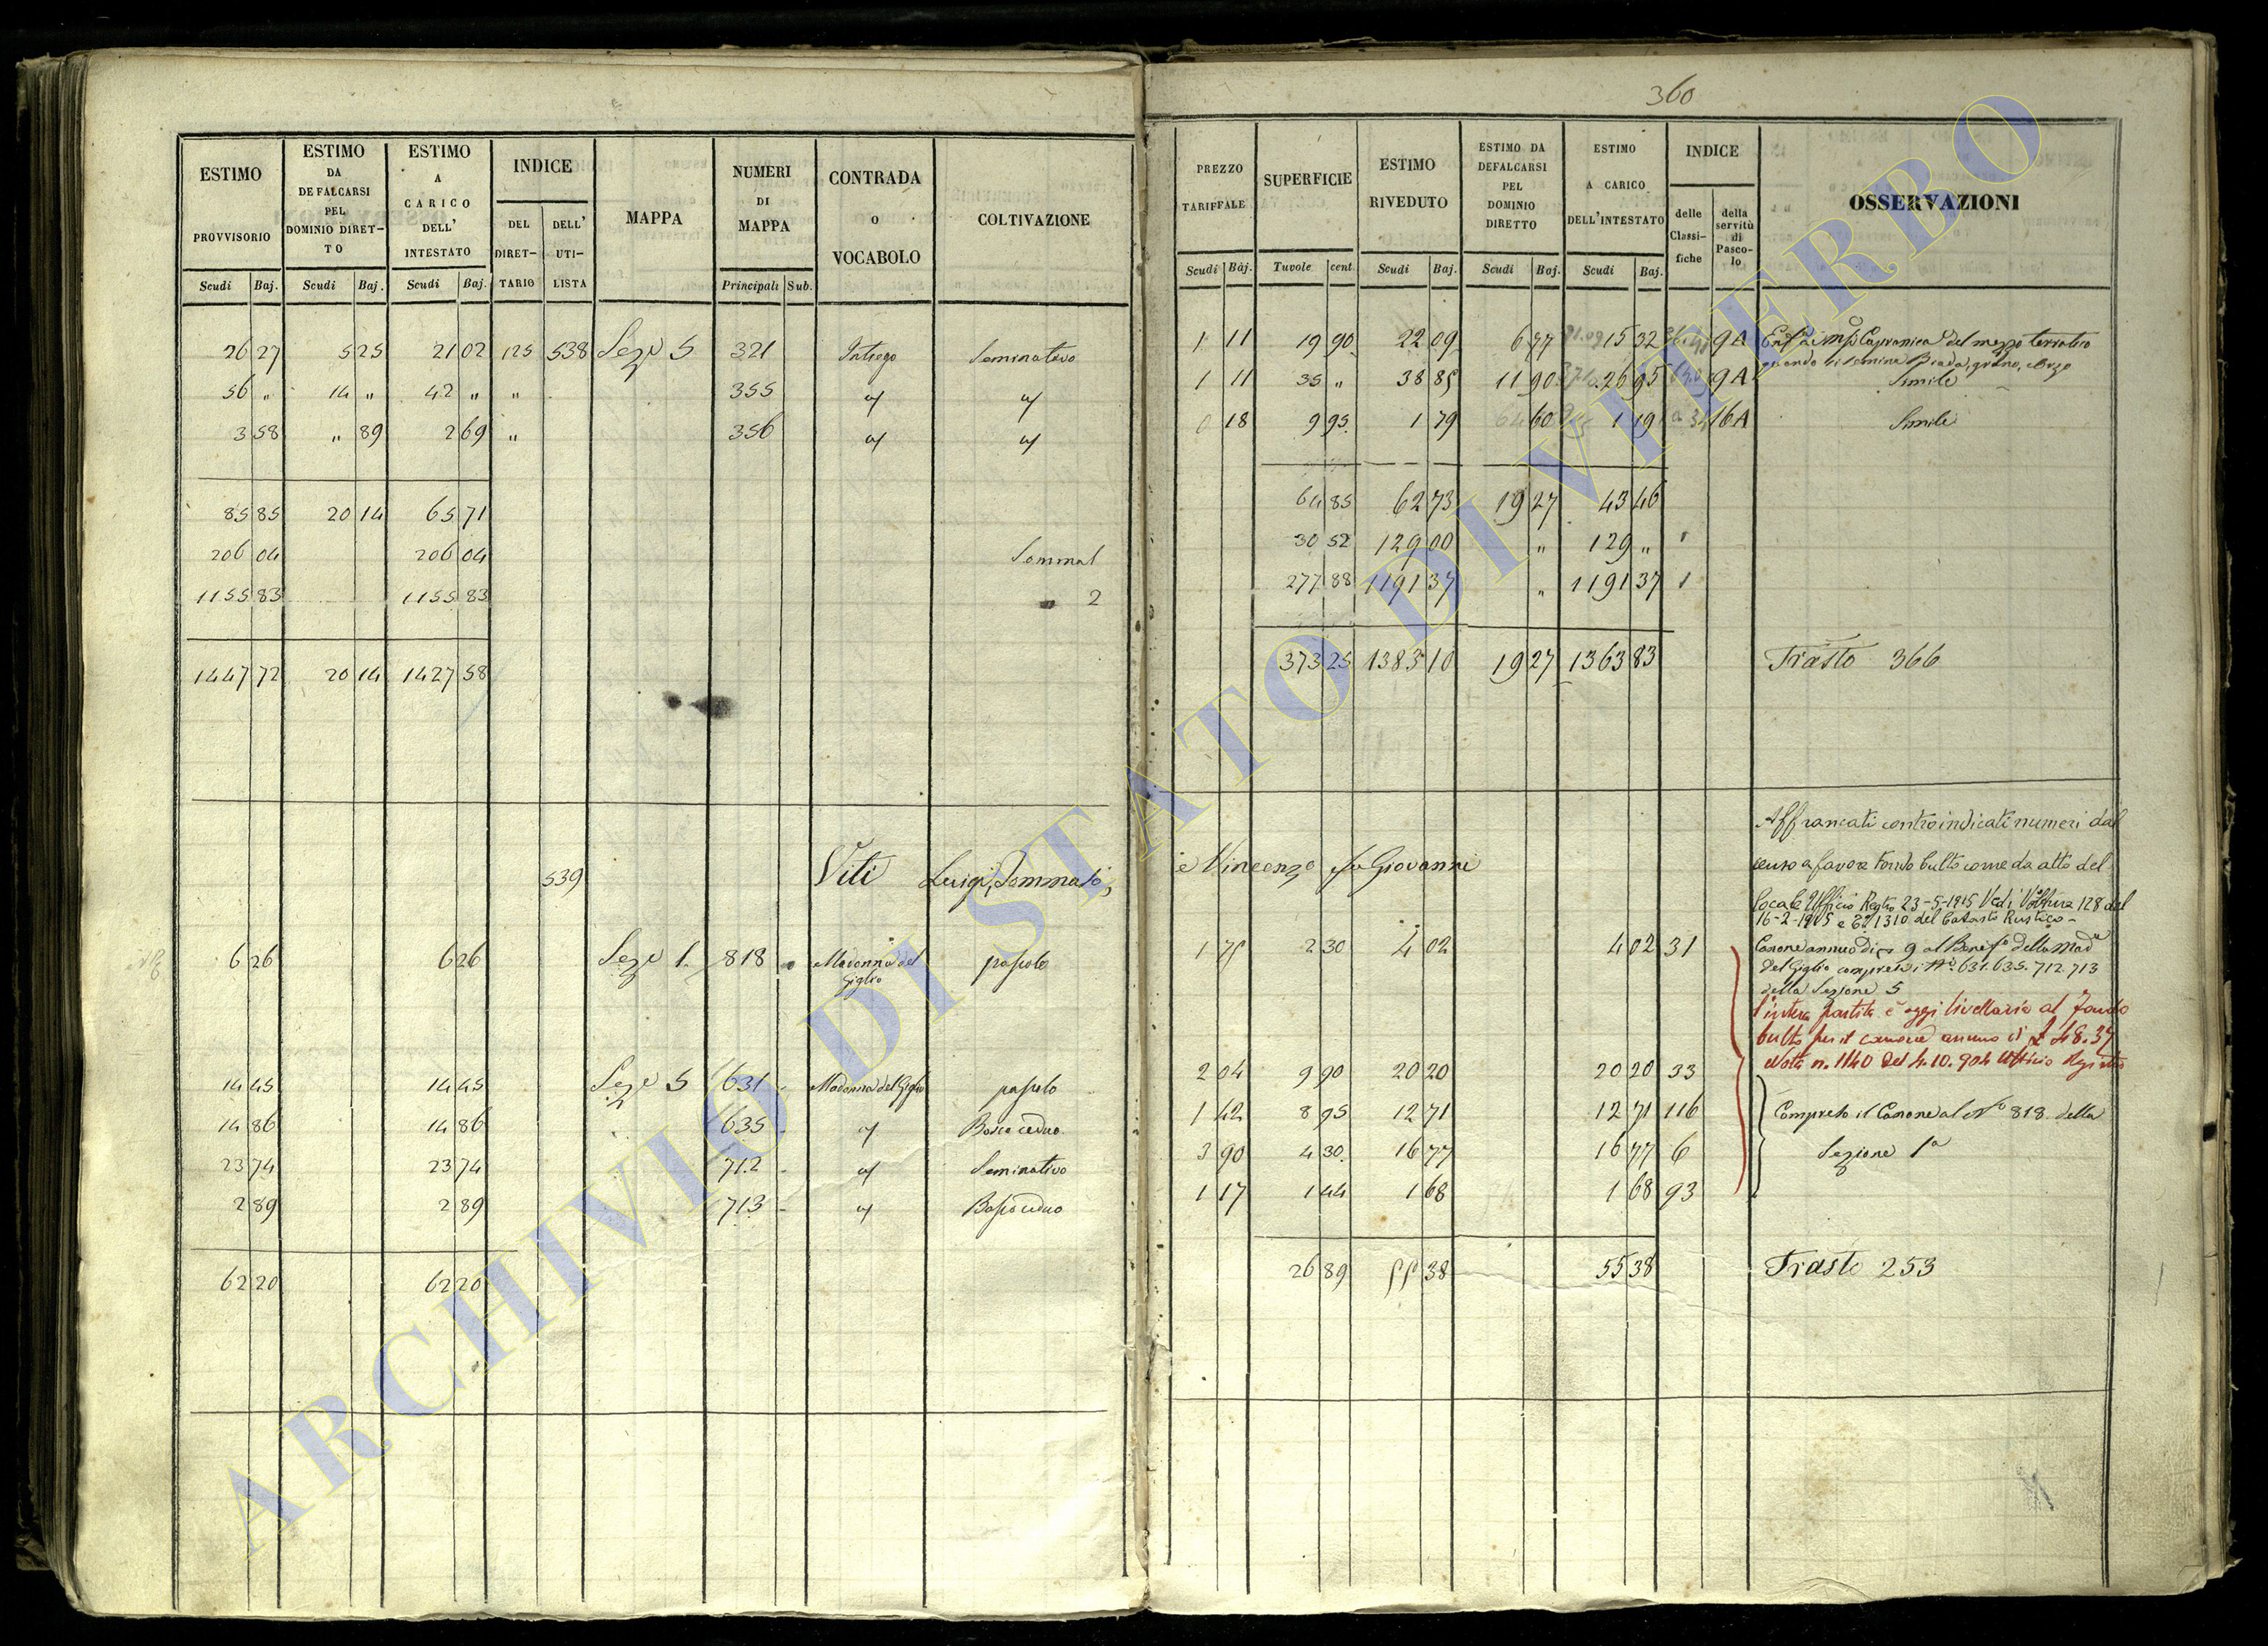 360
ESTIMO PROVVISORIO | ESTIMO DA DEFALCARSI PEL DOMINIO DIRETTO | ESTIMO A CARICO DELL' INTESTATO | INDICE DEL DIRETTARIO | DELL' UTILISTA | MAPPA | NUMERI DI MAPPA | CONTRADA O VOCABOLO | COLTIVAZIONE | PREZZO TARIFFALE | SUPERFICIE | ESTIMO RIVEDUTO | ESTIMO DA DEFALCARSI PEL DOMINIO DIRETTO | ESTIMO A CARICO DELL'INTESTATO | INDICE delle Classifiche | della servitù di Pascolo | OSSERVAZIONI
Scudi Baj. | Scudi Baj. | Scudi Baj. | Principali Sub. | Scudi Baj. | Tavole cent. | Scudi Baj. | Scudi Baj. | Scudi Baj.
26 27 | 5 25 | 21 02 | 125 | 538 | Seze 5 | 321 | Seminativo | 1 11 | 19 90 | 22 09 | 6 77 | 15 32 | 9A | Capranica del mezzo terratico
quando si semina Biada, grano, orzo
56 " | 14 " | 42 " | " | 355 | 1 11 | 35 " | 38 85 | 11 90 | 26 95 | 9A | Simile
3 58 | " 89 | 2 69 | " | 356 | 0 18 | 9 95 | 1 79 | 60 | 1 19 | 16A | Simile
85 85 | 20 14 | 65 71 | 64 85 | 62 73 | 19 27 | 43 46
206 04 | 206 04 | 30 52 | 129 00 | " | 129 "
1155 83 | 1155 83 | 2 | 277 88 | 1191 37 | " | 1191 37
1447 72 | 20 14 | 1427 58 | 373 25 | 1383 10 | 19 27 | 1363 83 | Trasto 366
Affrancati controindicati numeri dal
539 | Viti Luigi, Tommaso, e Vincenzo fu Giovanni | censo a favore Fondo Culto come da atto del
Locale Ufficio Registro 23-5-1915 Vedi Voltura 128 del
16-2-1915 e 1310 del Catasto Rustico
6 26 | 6 26 | Seze 1. | 818 | Madonna del Giglio | pascolo | 1 75 | 2 30 | 4 02 | 4 02 | 31 | Canone annuo di 9 al Benef.o della Mad.a
Del Giglio compresi i Ni. 631. 635. 712. 713
della Sezione 5
l'intera partita è oggi livellaria al Fondo
Culto per il canone annuo di £ 48.37
Nota n. 1140 del 4.10.904 Ufficio Registro
14 45 | 14 45 | Seze 5 | 631 | Madonna del Giglio | pascolo | 2 04 | 9 90 | 20 20 | 20 20 | 33
14 86 | 14 86 | 635 | Bosco ceduo | 1 42 | 8 95 | 12 71 | 12 71 | 116 | Compreso il Canone al No 818 della
23 74 | 23 74 | 712 | Seminativo | 3 90 | 4 30 | 16 77 | 16 77 | 6 | Sezione 1a
2 89 | 2 89 | 713 | Bosco ceduo | 1 17 | 1 44 | 1 68 | 1 68 | 93
62 20 | 62 20 | 26 89 | 55 38 | 55 38 | Trasto 253
ARCHIVIO DI STATO DI VITERBO